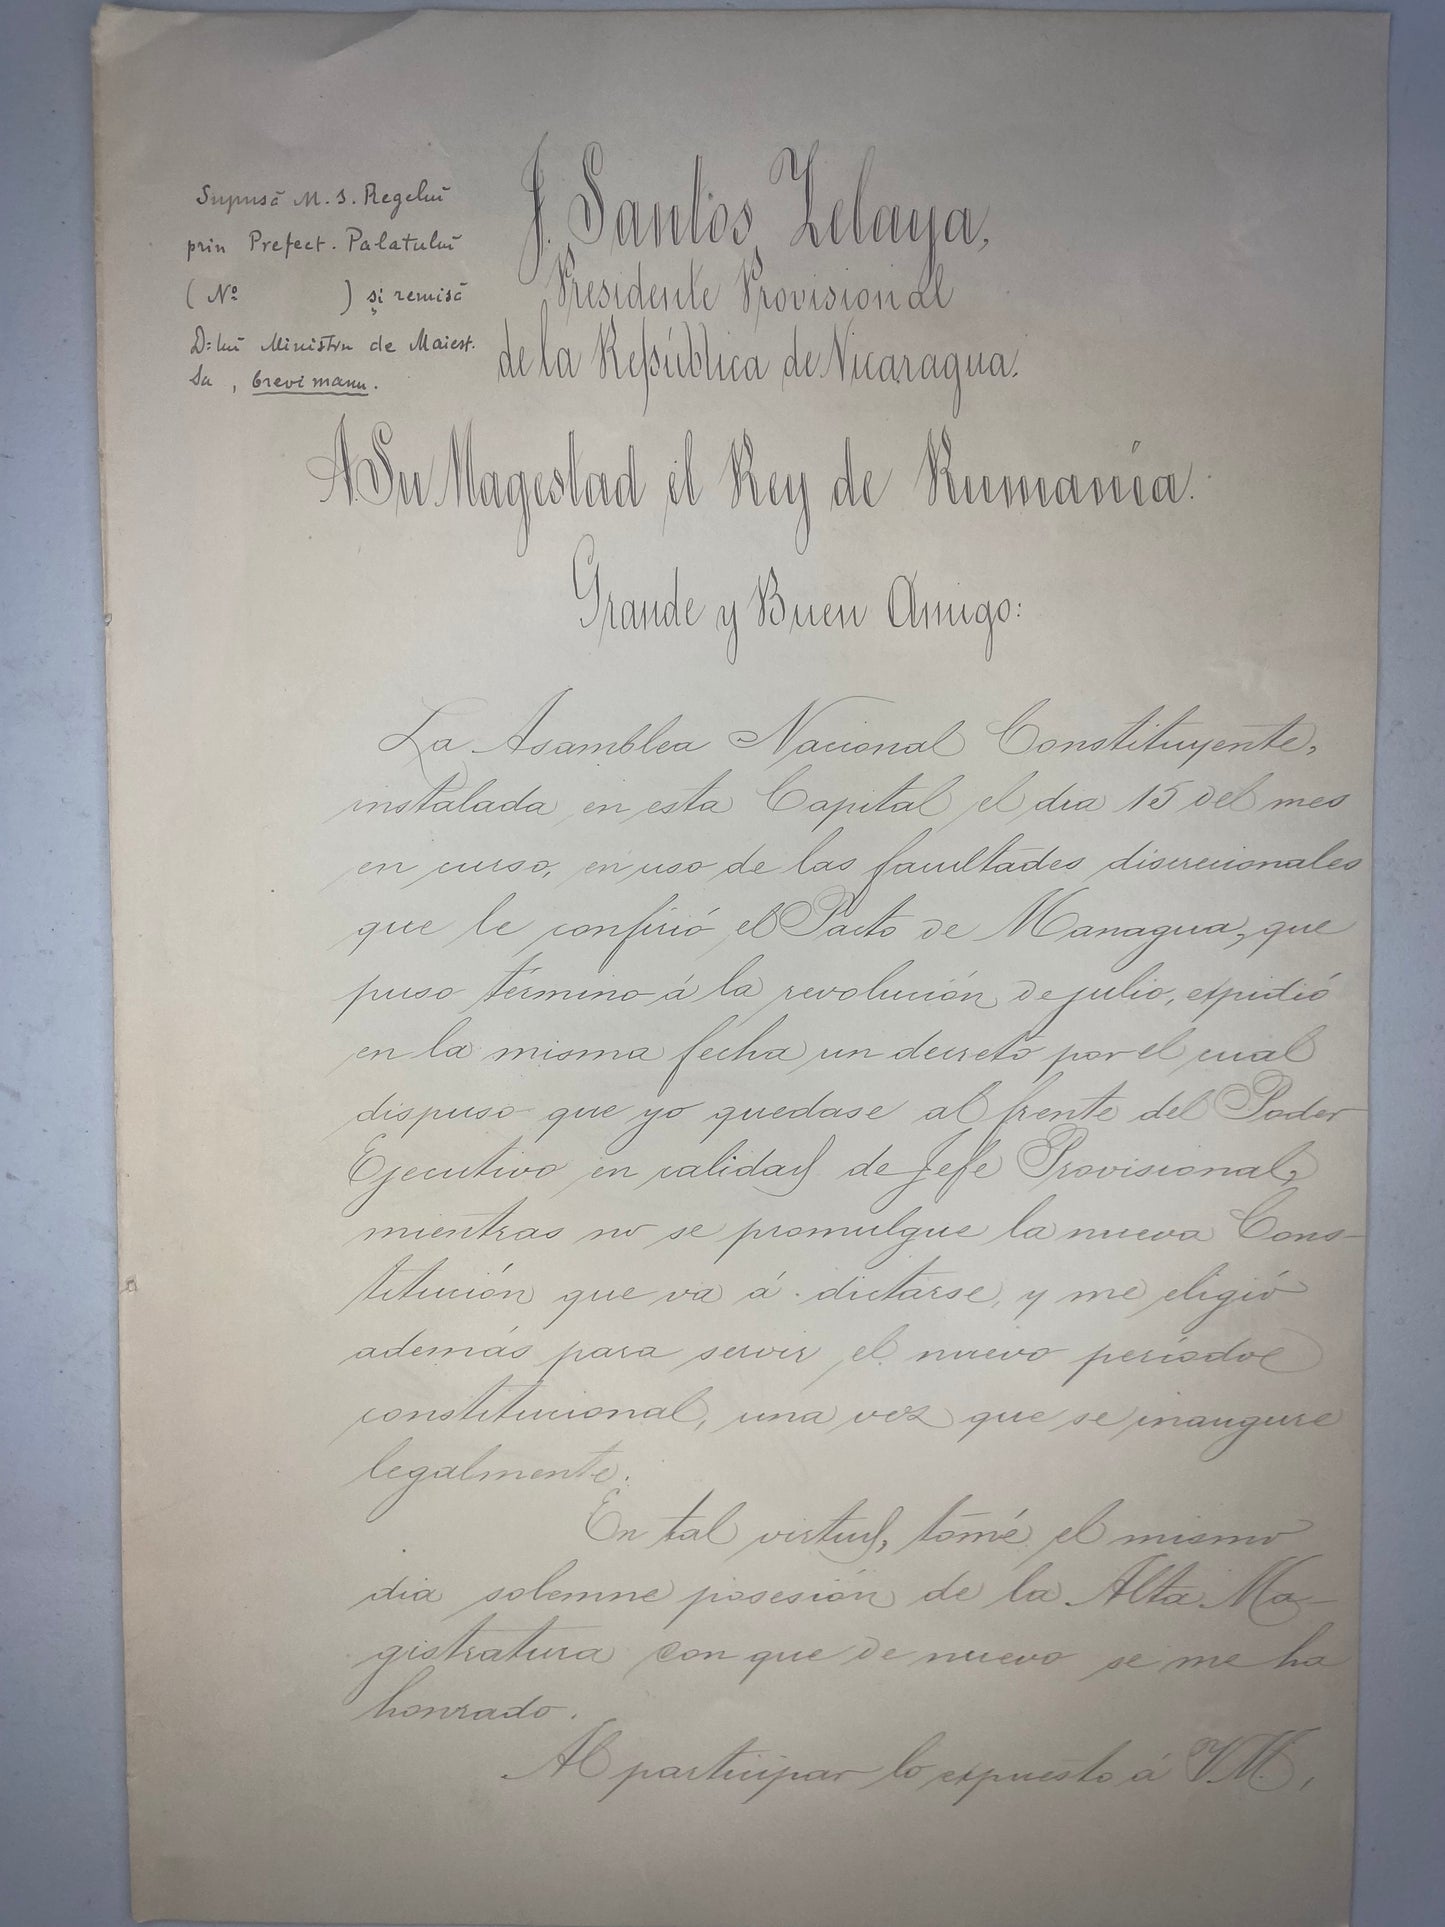 Supusă M. S. Regelui
prin Prefect. Palatului
( Nº ) și remisă
D-lui Ministru de Maiest.
Sa, brevi manu.
J. Santos Zelaya,
Presidente Provisional
de la República de Nicaragua.
A Su Magestad el Rey de Rumanía.
Grande y Buen Amigo:
La Asamblea Nacional Constituyente,
instalada en esta Capital el dia 15 del mes
en curso, en uso de las facultades discrecionales
que le confirió el Pacto de Managua, que
puso término á la revolución de julio, expidió
en la misma fecha un decreto por el cual
dispuso que yo quedase al frente del Poder
Ejecutivo en calidad de Jefe Provisional,
mientras no se promulgue la nueva Cons-
titución que va á dictarse, y me eligió
además para servir el nuevo período
constitucional, una vez que se inaugure
legalmente.
En tal virtud, tomé el mismo
dia solemne posesión de la Alta Ma-
gistratura con que de nuevo se me ha
honrado.
Al participar lo expuesto á V. M.,